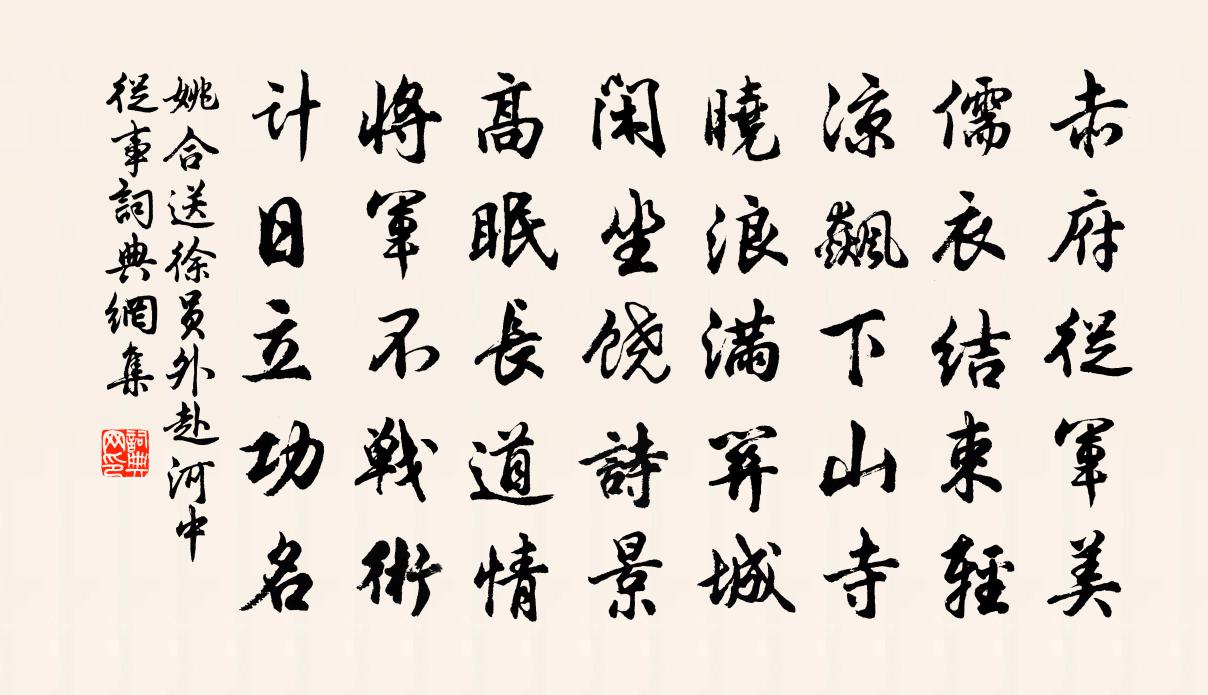 赤府從軍美
儒衣結束輕
涼飆下山寺
曉浪滿關城
閑坐饒詩景
高眠長道情
將軍不戰術
计日立功名
姚合送徐员外赴河中
從事詞典網集
詞典网印